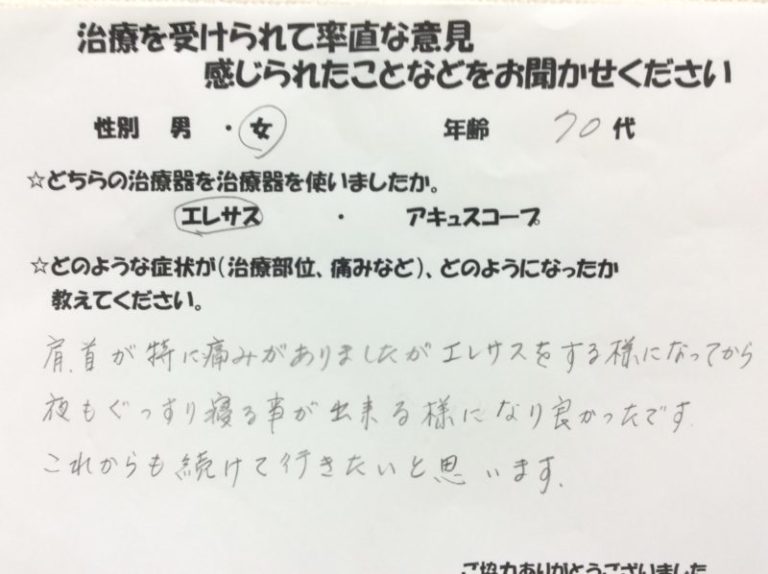 治療を受けられて率直な意見
感じられたことなどをお聞かせください
性別 男 ・ 女 年齢 70代
☆どちらの治療器を治療器を使いましたか。
エレサス ・ アキュスコープ
☆どのような症状が(治療部位、痛みなど)、どのようになったか
教えてください。
肩、首が特に痛みがありましたがエレサスをする様になってから
夜もぐっすり寝る事が出来る様になり良かったです
これからも続けて行きたいと思います.
ご協力ありがとうございました